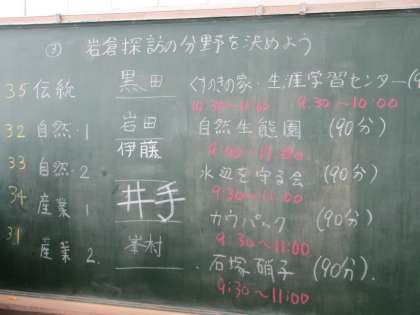 ③ 岩倉探訪の分野を決めよう
35 伝統 黒田 くすのきの家・生涯学習センター
10:30~11:00 9:30~10:00
32 自然・1 岩田 自然生態園 (90分)
伊藤 9:30~11:00
33 自然・2 水辺を守る会 (90分)
9:30~11:00
34 産業 1 井手 カウパック (90分)
9:30~11:00
31 産業 2. 峯村 石塚硝子 (90分).
9:30~11:00